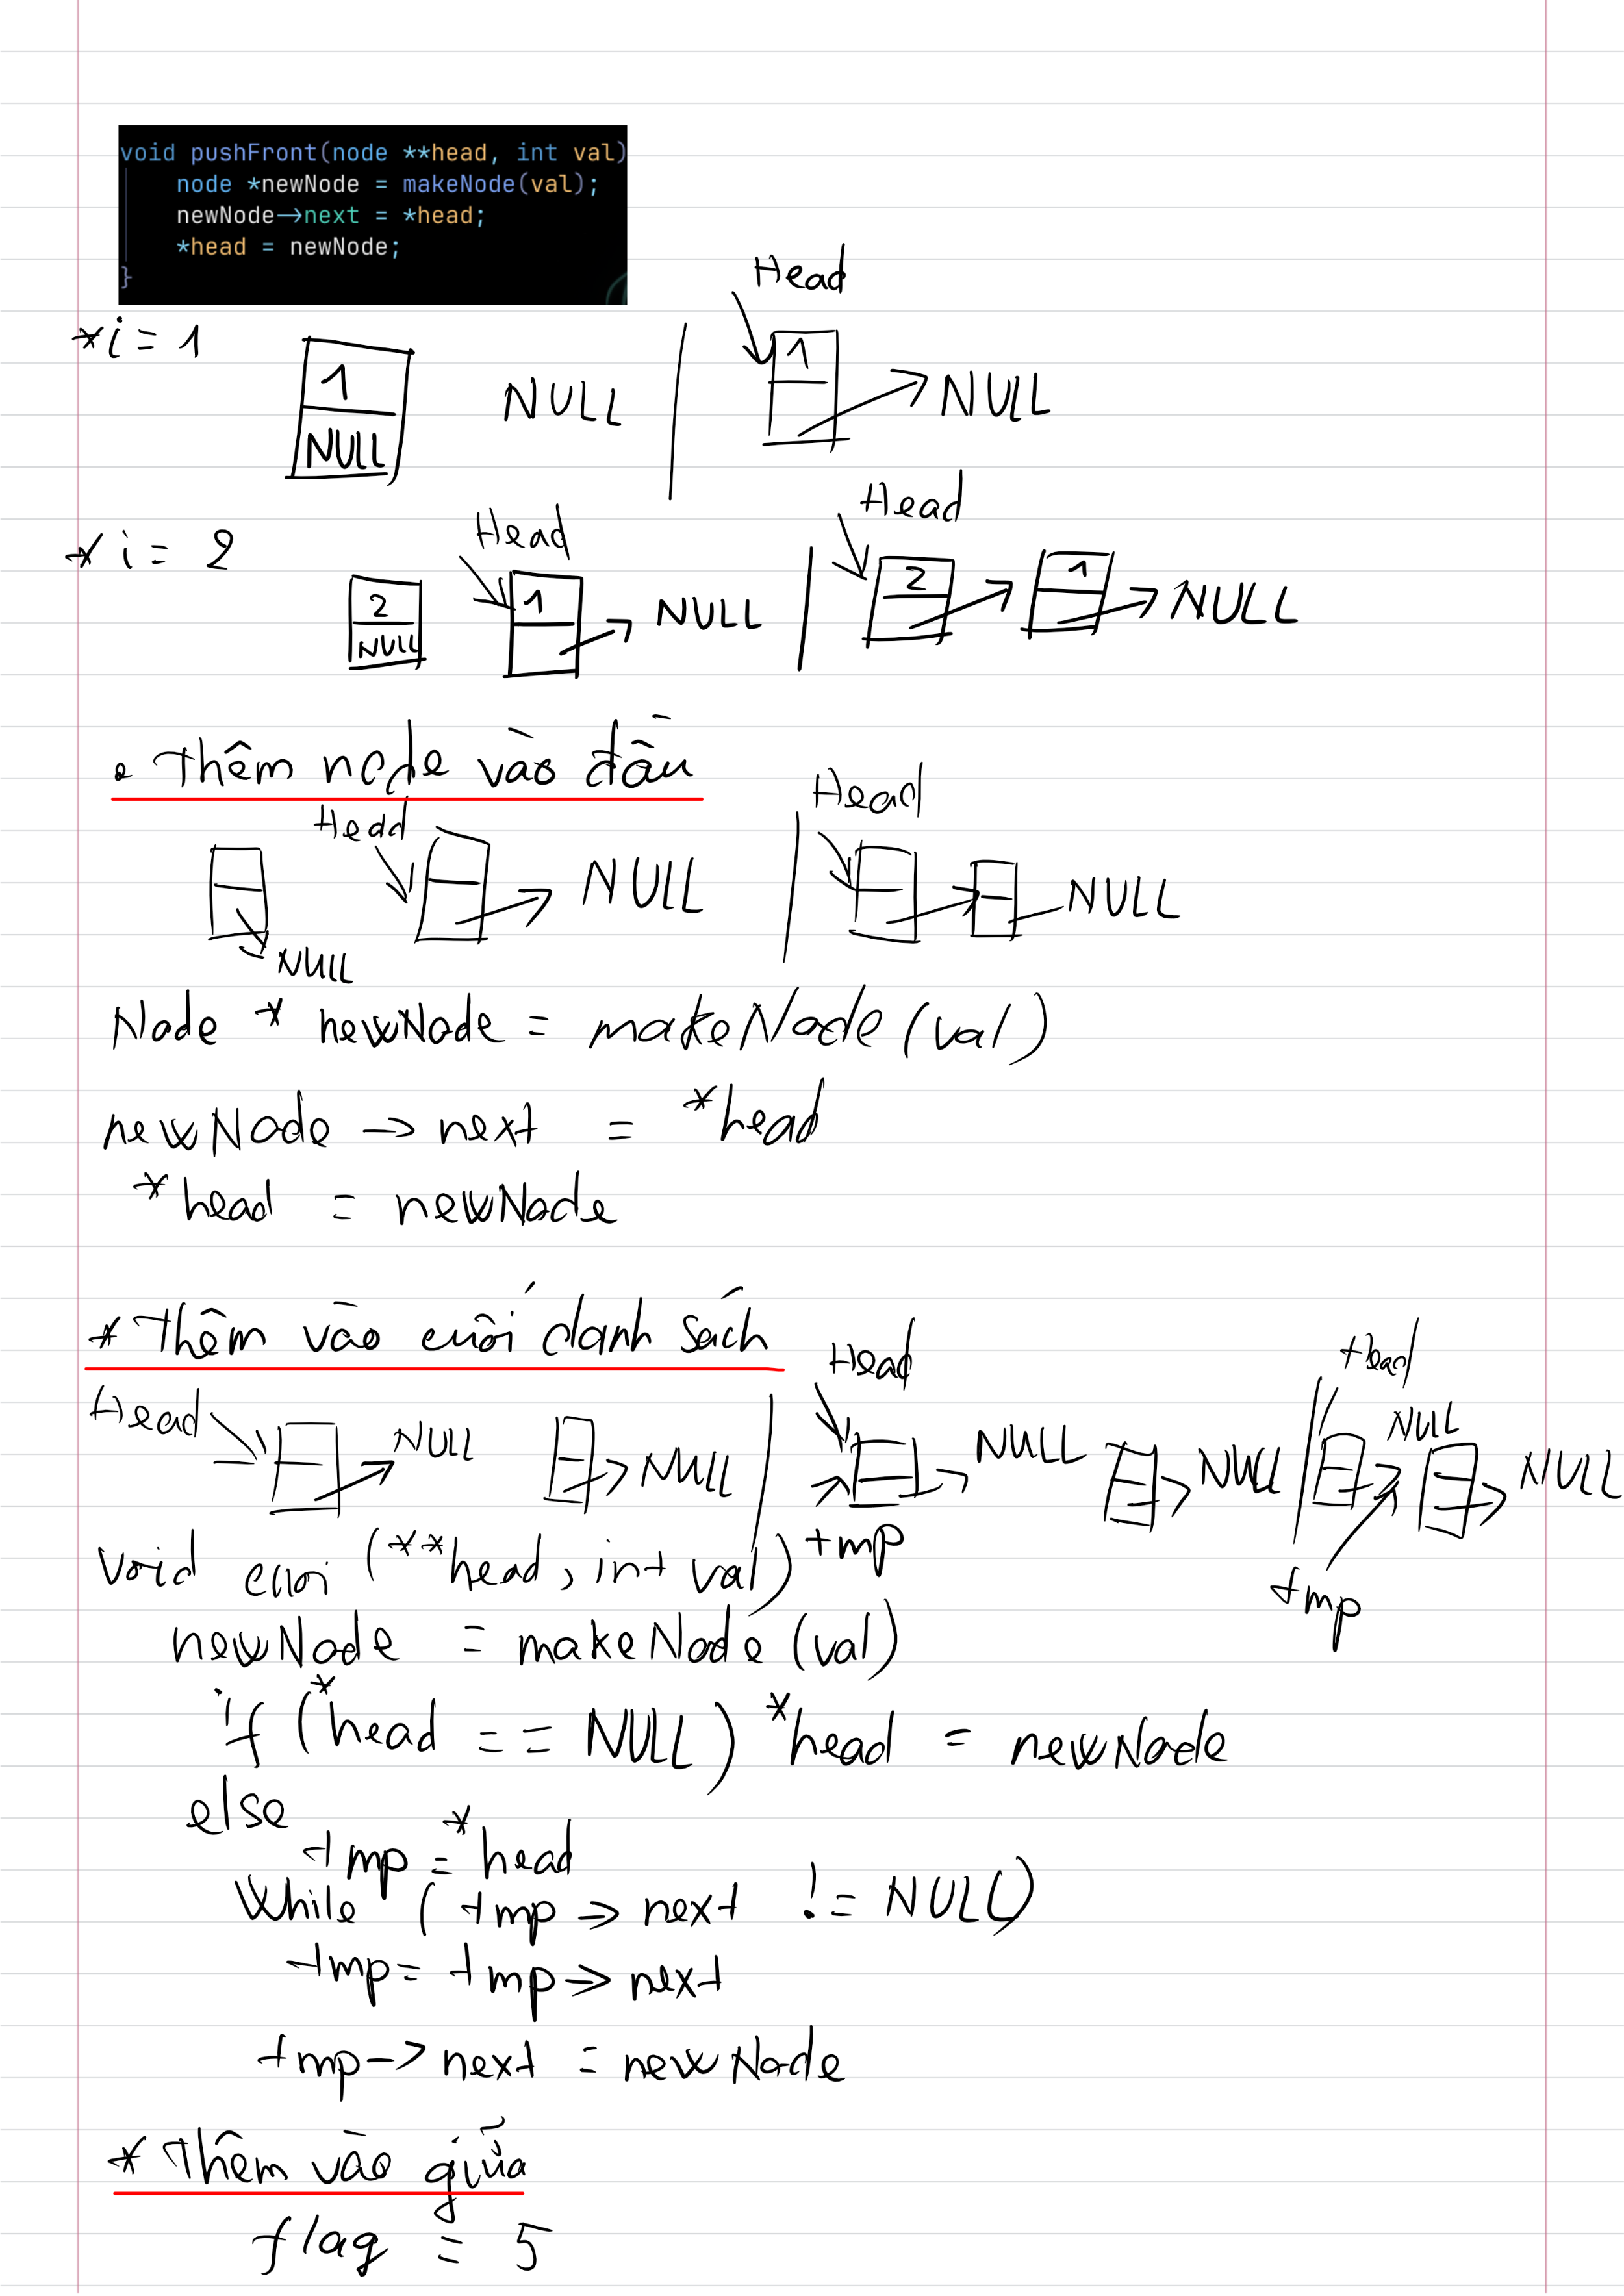 void pushFront(node **head, int val)
node *newNode = makeNode(val);
newNode→next = *head;
*head = newNode;
}
Head
*i = 1
1
NULL
NULL
1
NULL
Head
Head
*i = 2
2
NULL
1
NULL
2
1
NULL
• Thêm node vào đầu
Head
Head
NULL
NULL
NULL
Node * newNode = makeNode (val)
newNode -> next = *head
*head = newNode
* Thêm vào cuối danh sách
Head
Head
Head
NULL
NULL
NULL
NULL
NULL
NULL
tmp
tmp
void cuoi (**head, int val)
newNode = makeNode (val)
if (*head == NULL) *head = newNode
else
tmp = *head
While (tmp -> next != NULL)
tmp = tmp -> next
tmp -> next = newNode
* Thêm vào giữa
flag = 5